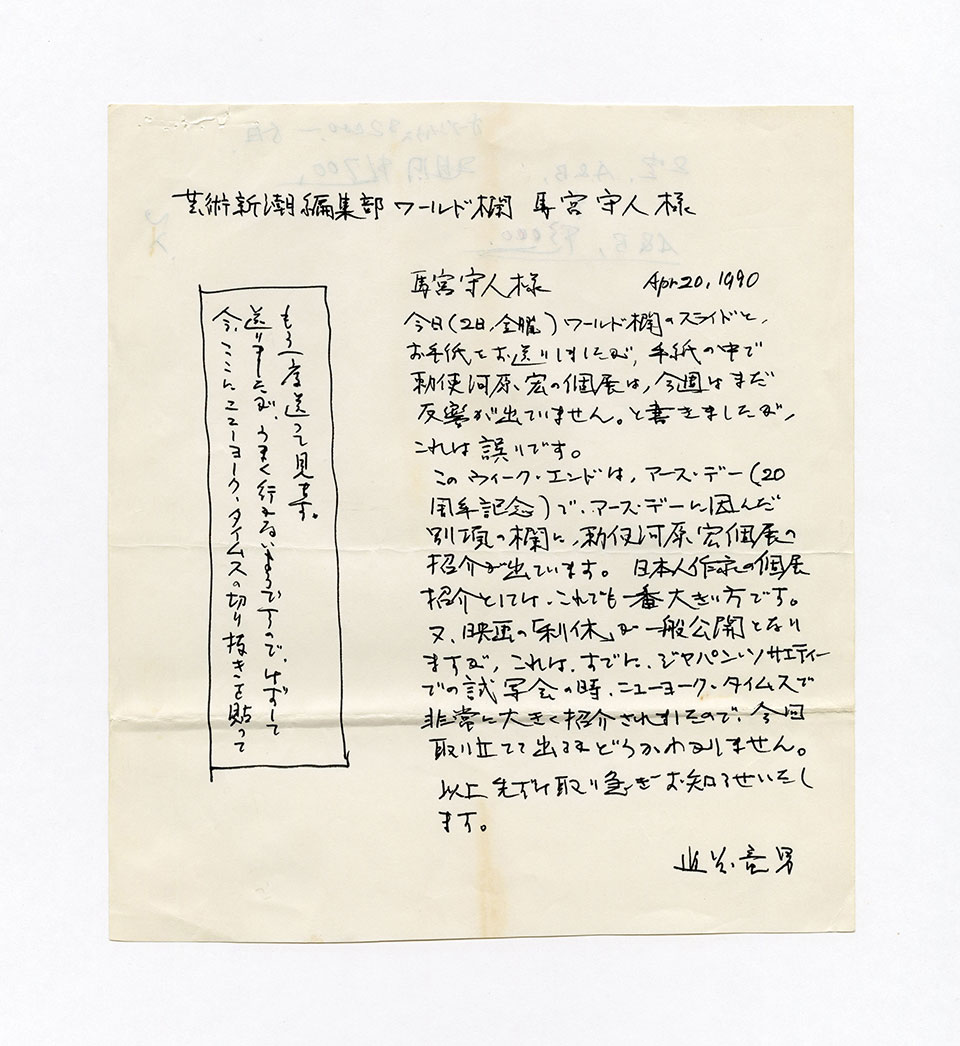 芸術新潮編集部 ワールド欄 馬宮守人様
馬宮守人様 Apr 20, 1990
今日(2日,金曜)ワールド欄のスライドと,
お手紙をお送りしましたが,手紙の中で
勅使河原宏の個展は,今週はまだ
反響が出ていません。と書きましたが,
これは誤りです。
このウィーク・エンドは,アース・デー(20
周年記念)で,アース・デーに因んだ
別項の欄に,勅使河原宏個展の
紹介が出ています。日本人作家の個展
紹介としては,これでも一番大きい方です。
又,映画の「利休」が一般公開となり
ますが,これは,すでに,ジャパン・ソサエティー
での試写会の時,ニューヨーク・タイムスで
非常に大きく紹介されましたので,今回
取り立てて出るかどうかわかりません。
以上 先ずは取り急ぎお知らせいたし
ます。
もう一度送って見ます。
送りましたが、うまく行かないようですので、はずして
今、ここに、ニューヨーク・タイムスの切り抜きを貼って
A&B,